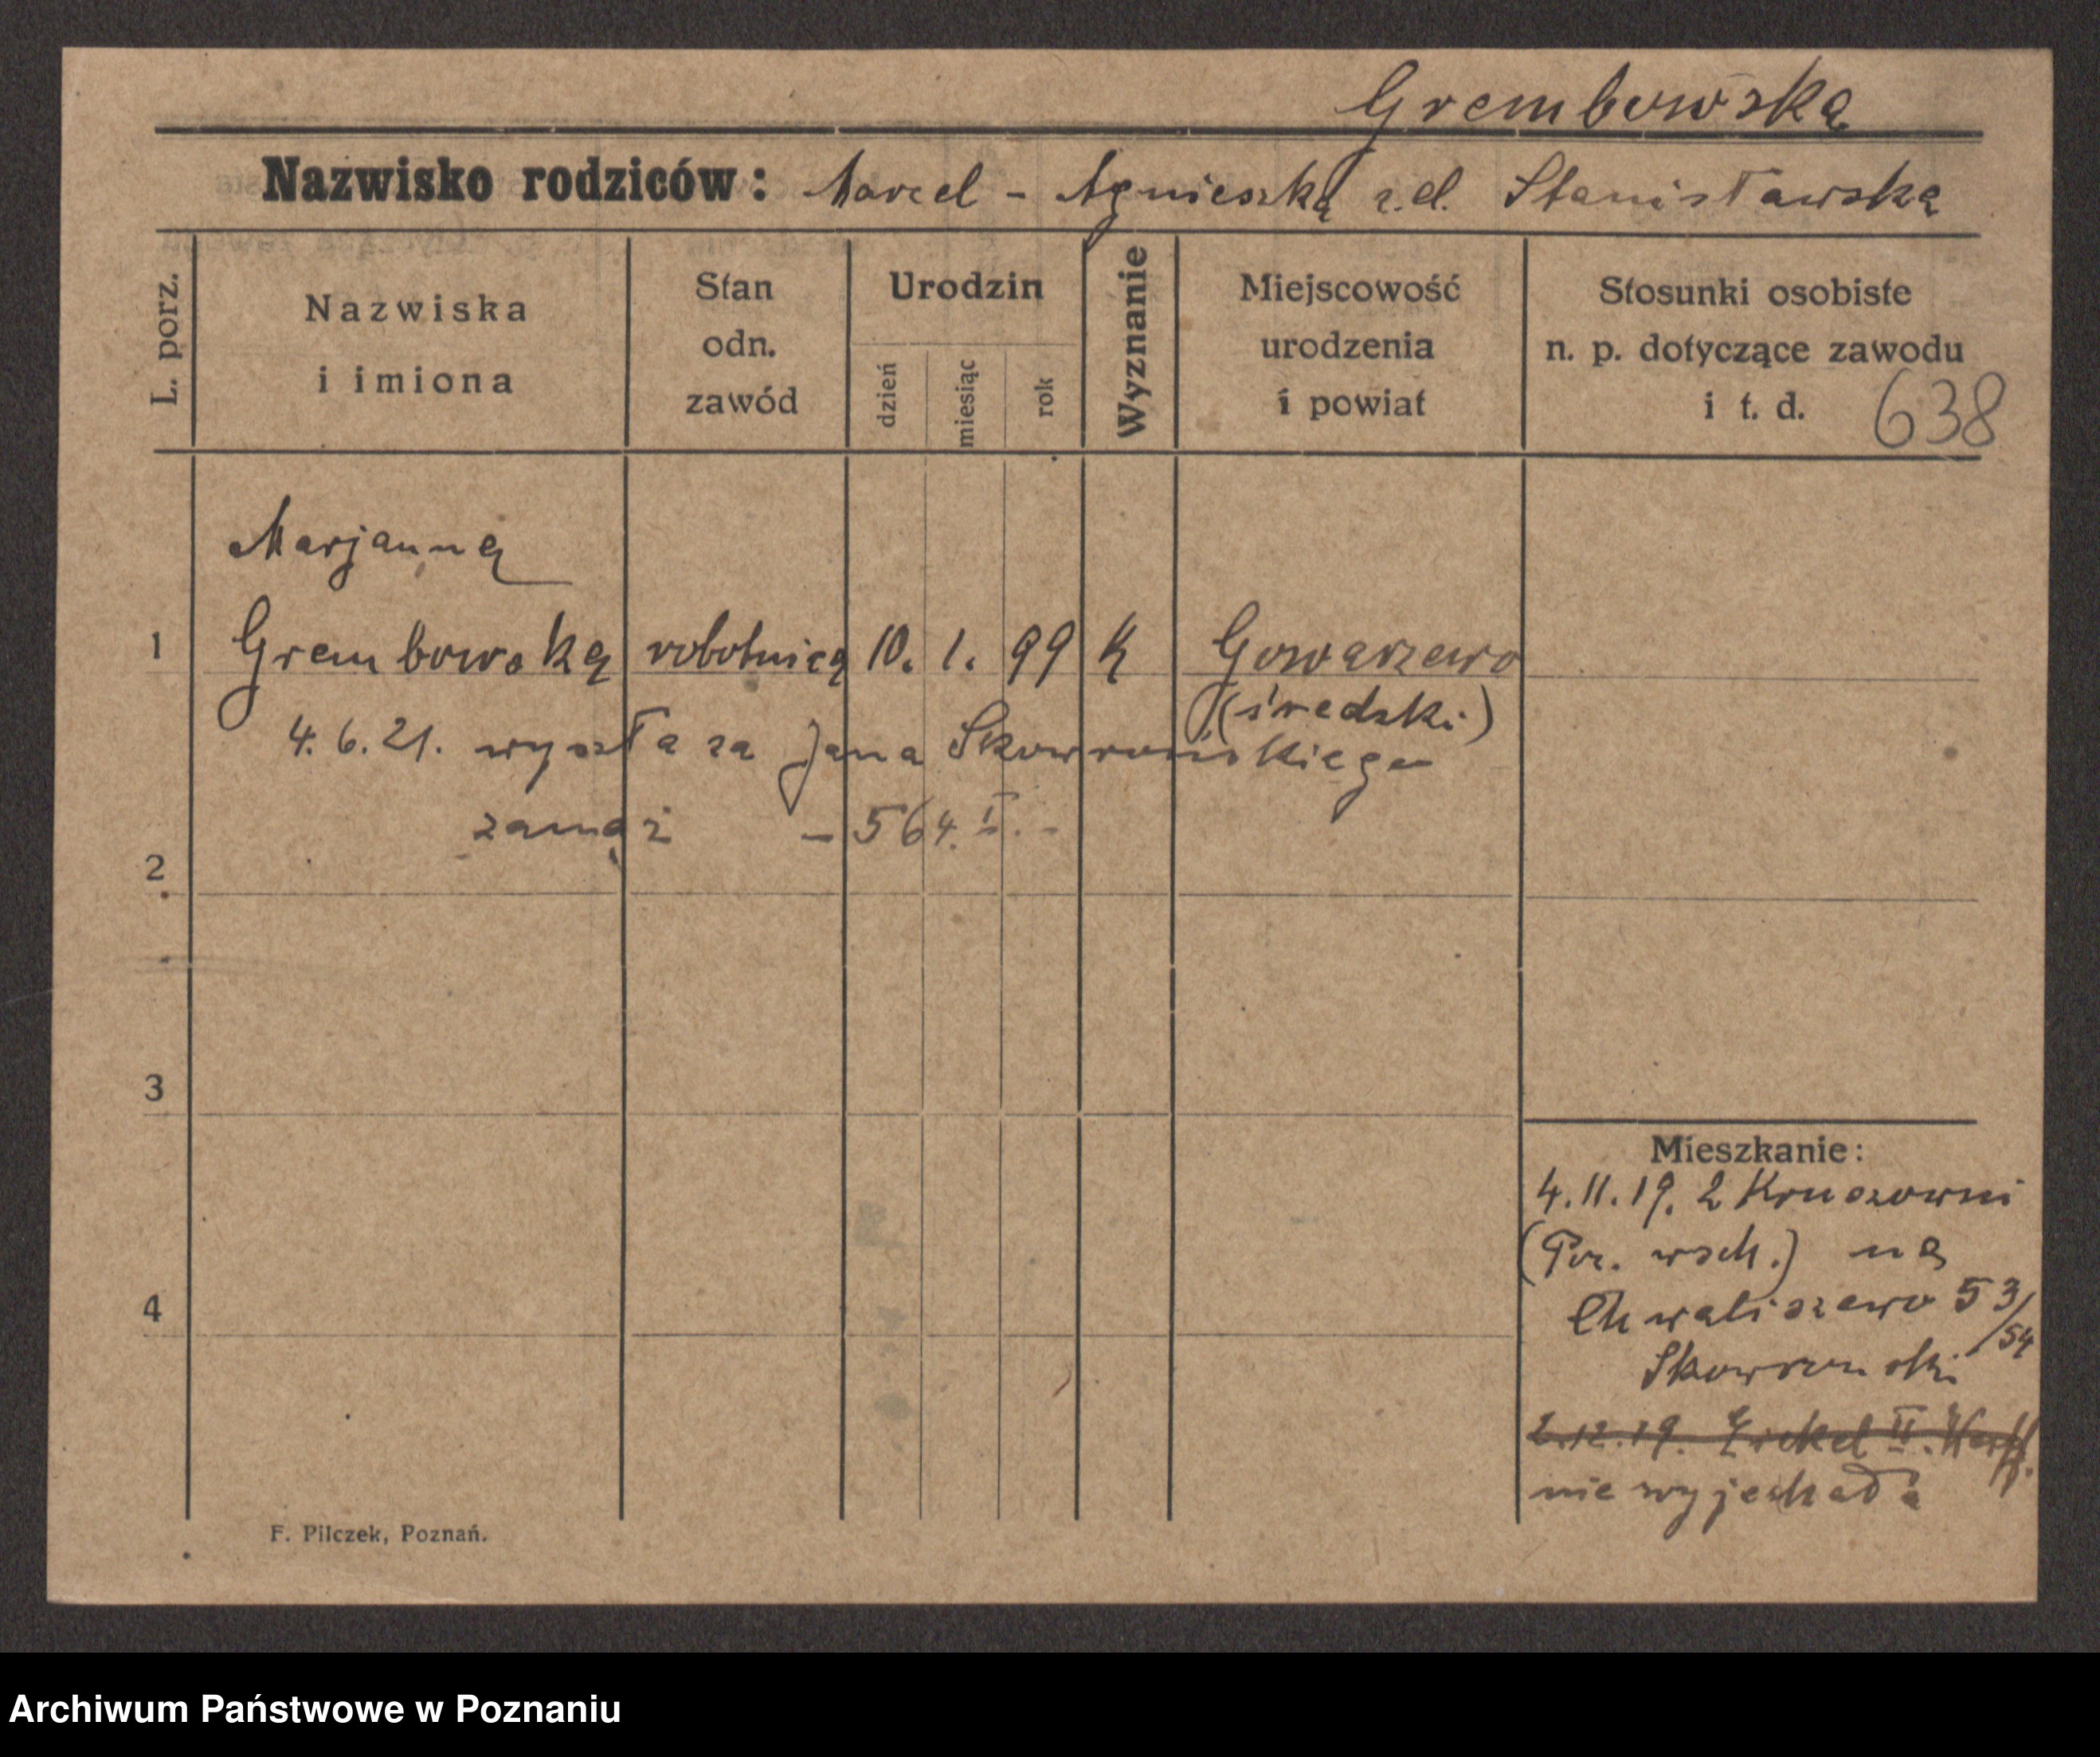 Grembowska
Nazwisko rodziców: Marcel - Agnieszka z.d. Stanisławska
L. porz.
Nazwiska i imiona
Stan odn. zawód
Urodzin
dzień
miesiąc
rok
Wyznanie
Miejscowość urodzenia i powiat
Stosunki osobiste n. p. dotyczące zawodu i t. d.
638
Marjanna
1 Grembowska robotnica 10. 1. 99 k Gowarzewo
(średzki)
4. 6. 21. wyszła za Jana Skowrońskiego
zamąż - 564. I. -
2
3
4
Mieszkanie:
4. 11. 19. z
(Poz. wsch.) na
Chwaliszewo 53/54
Skowronski
2.12.19. II.
nie wyjechała
F. Pilczek, Poznań.
Archiwum Państwowe w Poznaniu